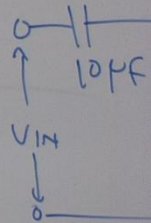 10µF
VIN